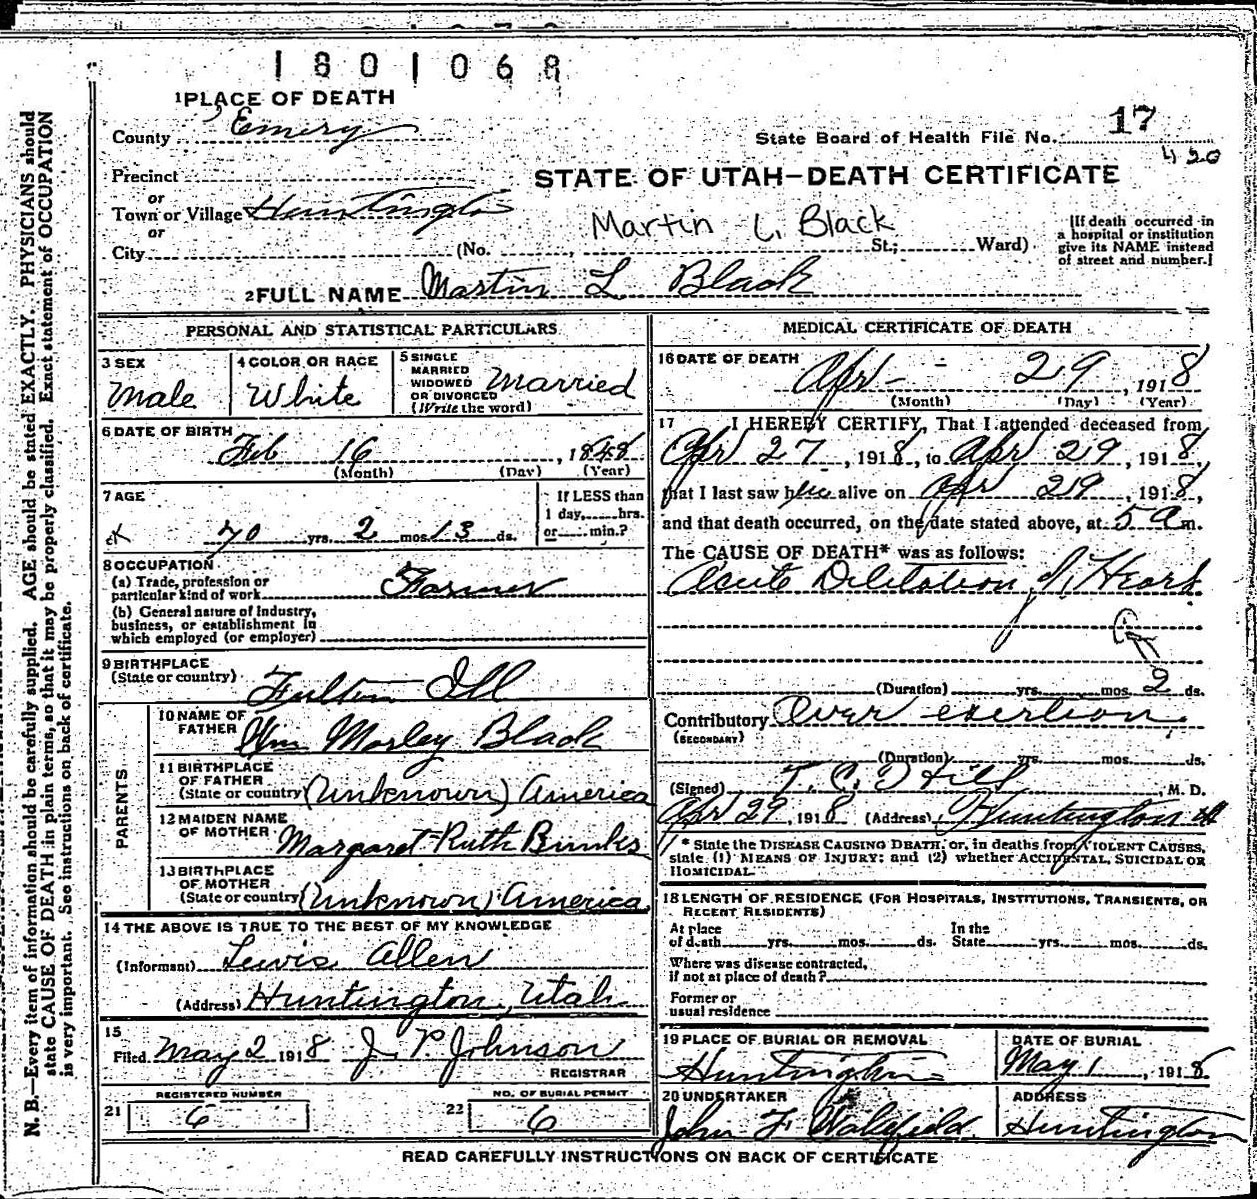 1801068
1 PLACE OF DEATH
County Emery
State Board of Health File No. 17
420
Precinct
or
STATE OF UTAH—DEATH CERTIFICATE
Town or Village Huntington
or
Martin L. Black
City (No. , St.; Ward)
[If death occurred in
a hospital or institution
give its NAME instead
of street and number.]
2 FULL NAME Martin L Black
PERSONAL AND STATISTICAL PARTICULARS
3 SEX
Male
4 COLOR OR RACE
White
5 SINGLE
MARRIED
WIDOWED
OR DIVORCED
(Write the word)
Married
6 DATE OF BIRTH
Feb 16, 1848
(Month) (Day) (Year)
7 AGE
70 yrs. 2 mos. 13 ds.
If LESS than
1 day, hrs.
or min.?
8 OCCUPATION
(a) Trade, profession or
particular kind of work Farmer
(b) General nature of industry,
business, or establishment in
which employed (or employer)
9 BIRTHPLACE
(State or country)
Fulton Ill
PARENTS
10 NAME OF
FATHER
Wm Morley Black
11 BIRTHPLACE
OF FATHER
(State or country) (Unknown) America
12 MAIDEN NAME
OF MOTHER
Margaret Ruth Bunks
13 BIRTHPLACE
OF MOTHER
(State or country) (Unknown) America
14 THE ABOVE IS TRUE TO THE BEST OF MY KNOWLEDGE
(Informant) Lewis Allen
(Address) Huntington, Utah
15
Filed May 2 1918 J. P. Johnson
REGISTRAR
REGISTERED NUMBER
21 6
NO. OF BURIAL PERMIT
22 6
MEDICAL CERTIFICATE OF DEATH
16 DATE OF DEATH
Apr - 29, 1918
(Month) (Day) (Year)
17 I HEREBY CERTIFY, That I attended deceased from
Apr 27, 1918, to Apr 29, 1918,
that I last saw him alive on Apr 29, 1918,
and that death occurred, on the date stated above, at 5 a m.
The CAUSE OF DEATH* was as follows:
Acute Dilitation of Heart
(Duration) yrs. mos. 2 ds.
Contributory Over exertion
(SECONDARY)
(Duration) yrs. mos. ds.
(Signed) T. C. Hill, M. D.
Apr 29, 1918 (Address) Huntington
* State the DISEASE CAUSING DEATH, or, in deaths from VIOLENT CAUSES,
state (1) MEANS OF INJURY; and (2) whether ACCIDENTAL, SUICIDAL OR
HOMICIDAL.
18 LENGTH OF RESIDENCE (FOR HOSPITALS, INSTITUTIONS, TRANSIENTS, OR
RECENT RESIDENTS)
At place
of death yrs. mos. ds.
In the
State yrs. mos. ds.
Where was disease contracted,
if not at place of death?
Former or
usual residence
19 PLACE OF BURIAL OR REMOVAL
Huntington
DATE OF BURIAL
May 1, 1918
20 UNDERTAKER
John F Wakefield
ADDRESS
Huntington
READ CAREFULLY INSTRUCTIONS ON BACK OF CERTIFICATE
N. B.—Every item of information should be carefully supplied. AGE should be stated EXACTLY. PHYSICIANS should
state CAUSE OF DEATH in plain terms, so that it may be properly classified. Exact statement of OCCUPATION
is very important. See instructions on back of certificate.